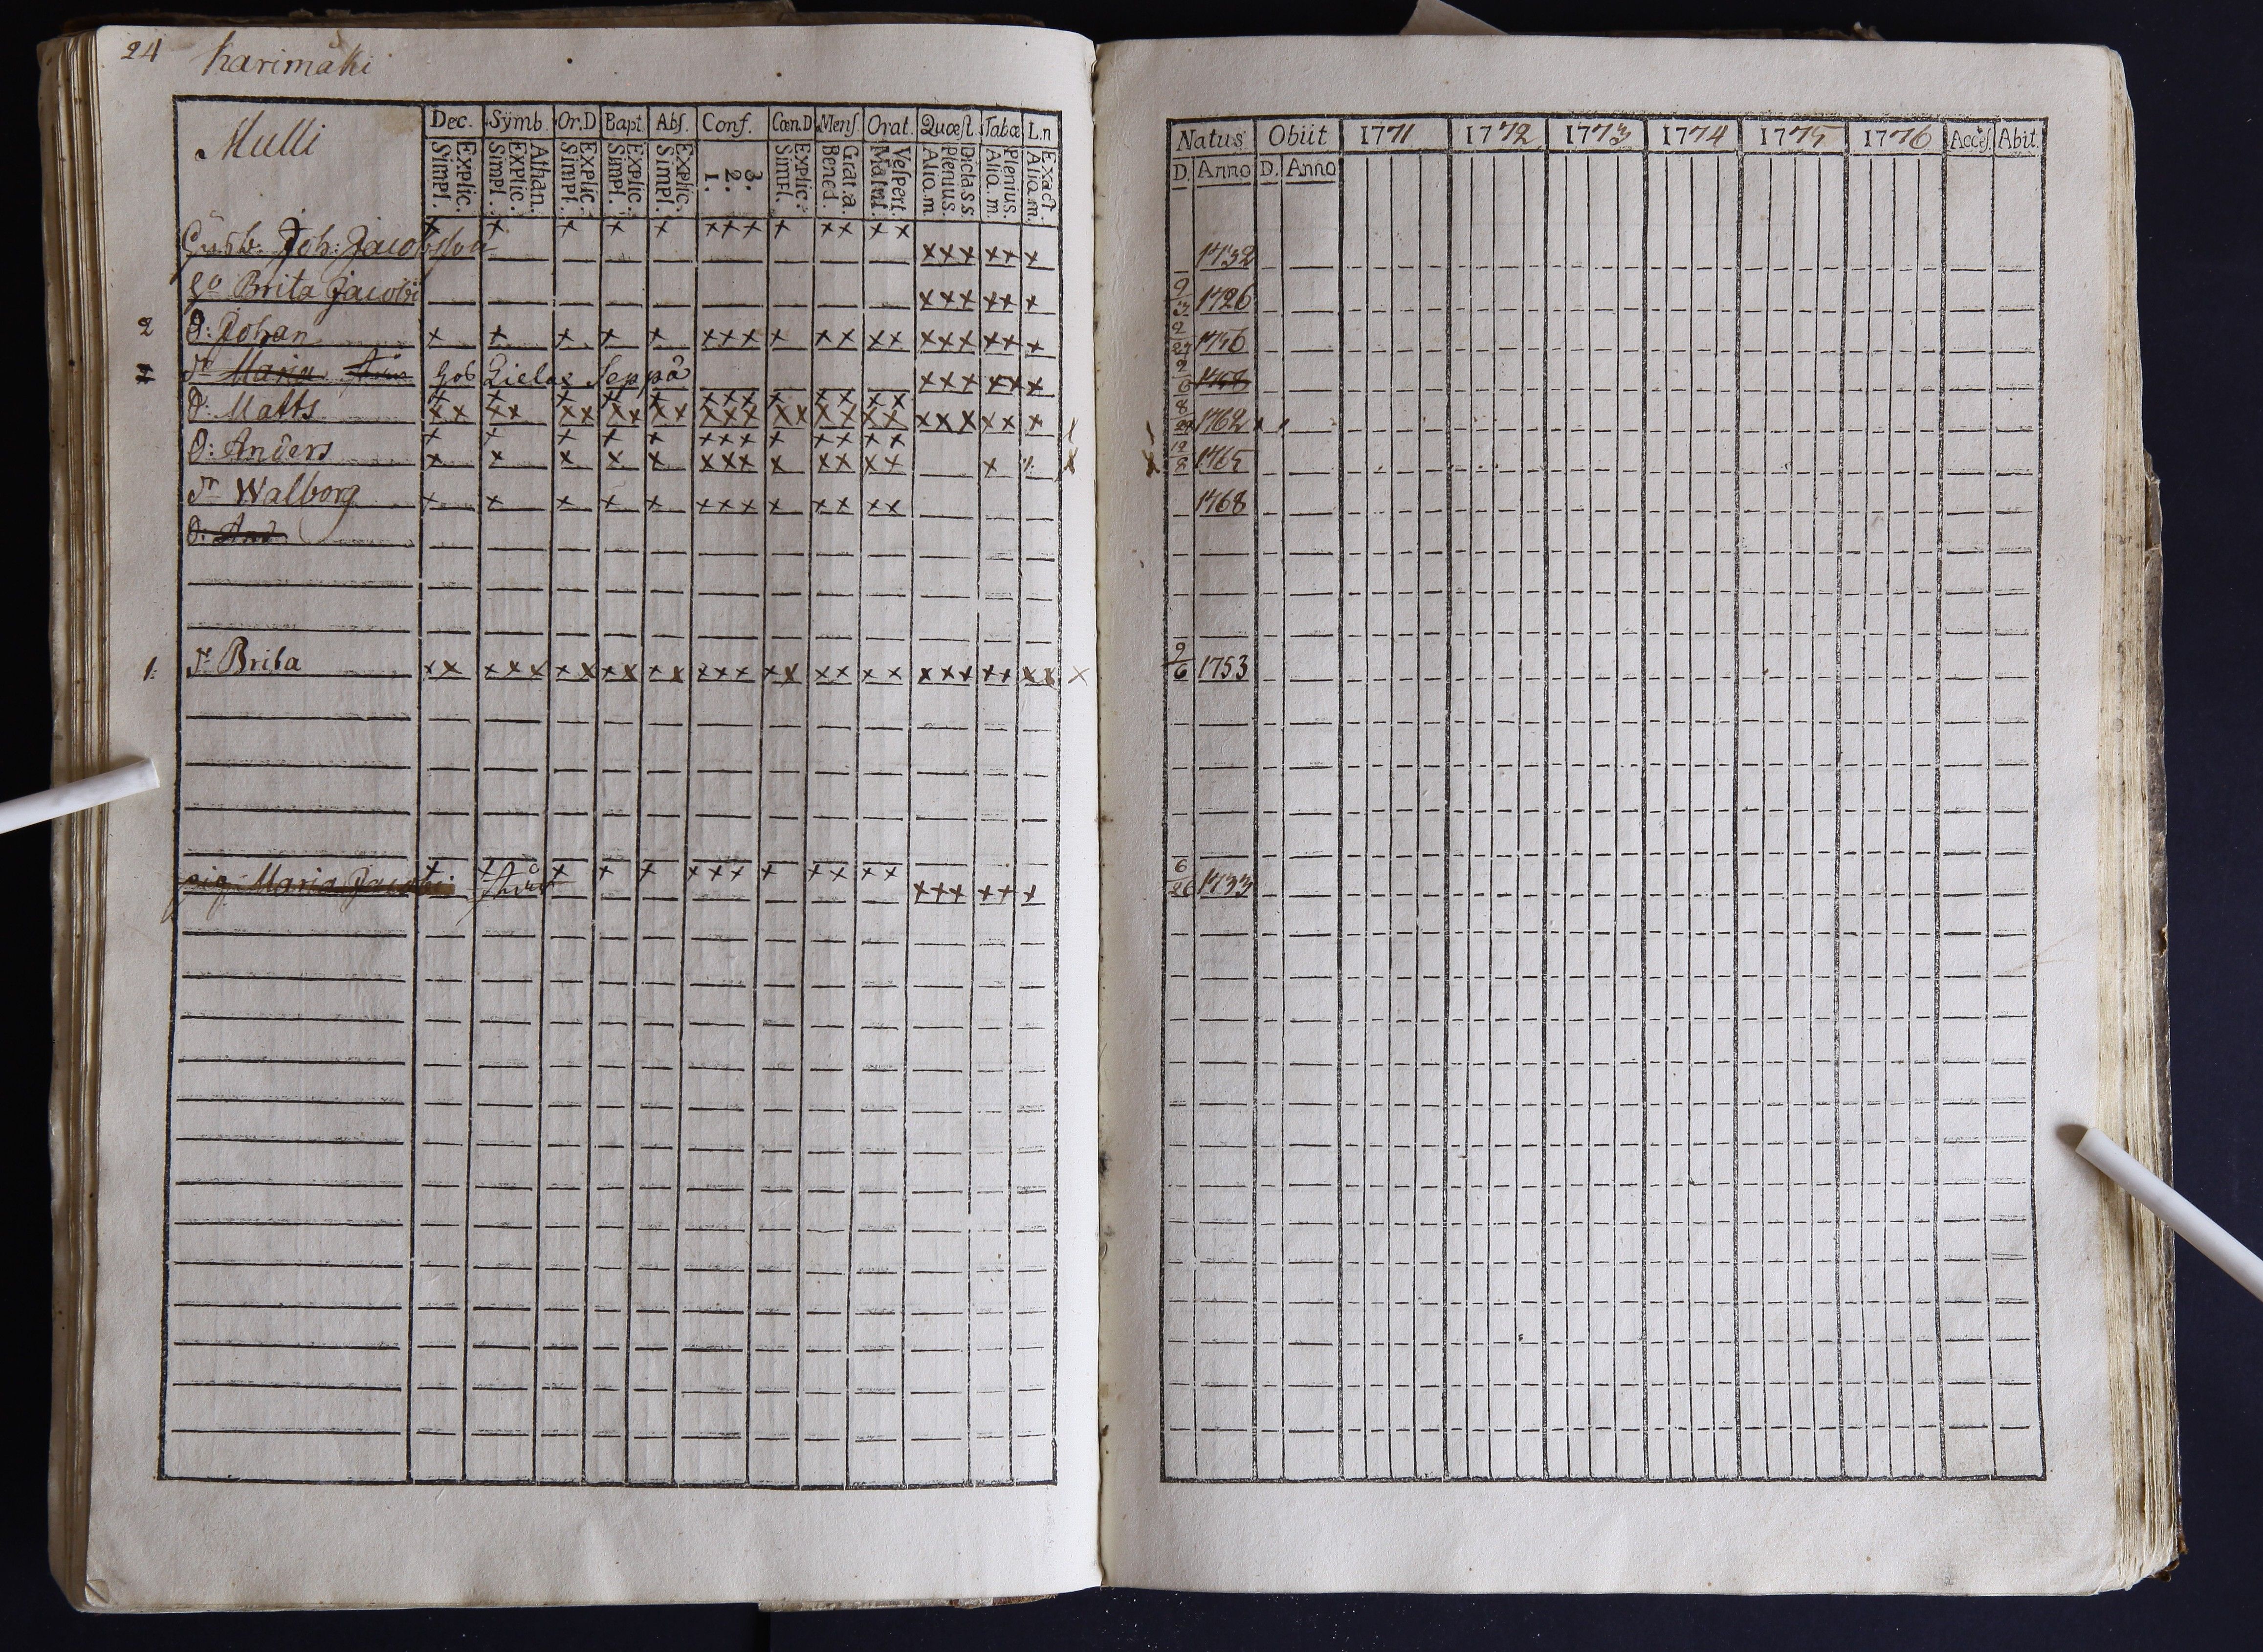 24 harimäki
Mulli
Dec. Sÿmb. Or.D Bapt. Abſ. Conf. Cœn.D Menſ. Orat. Quæſt. Tabæ L.n
Explic. Simpl. Athan. Explic. Simpl. Explic. Simpl. Explic. Simpl. Explic. Simpl. 3. 2. 1. Explic. Simpl. Grat.a. Bened. Veſpert. Matut. Dicla.s.s. Plenius. Aliq.m. Plenius. Aliq.m. Exact. Aliq.m.
Joh: Jacobsson x x x x x xxx x xx xx xxx xx x
Brita Jacobi xxx xx x
2 d: Johan x x x x x xxx x xx xx xxx xx x
Maria xxx xxx
d: Matts xx xx xx xx xx xxx xx xx xx xxx xx x
d: Anders x x x x x xxx x xx xx x
Walborg x x x x x xxx x xx xx
d: And
1. Brita xx xxx xx xx xx xxx xx xx xx xxx xx xx x
pig. Maria Jacobi x x x x x xxx x xx xx xxx xx x
Natus Obiit 1771 1772 1773 1774 1775 1776 Acceſ. Abit.
D. Anno D. Anno
1732
9/3 1726
2/27 1756
2/6 1758
8/29 1762
12/8 1765
1768
9/6 1753
6/26 1733